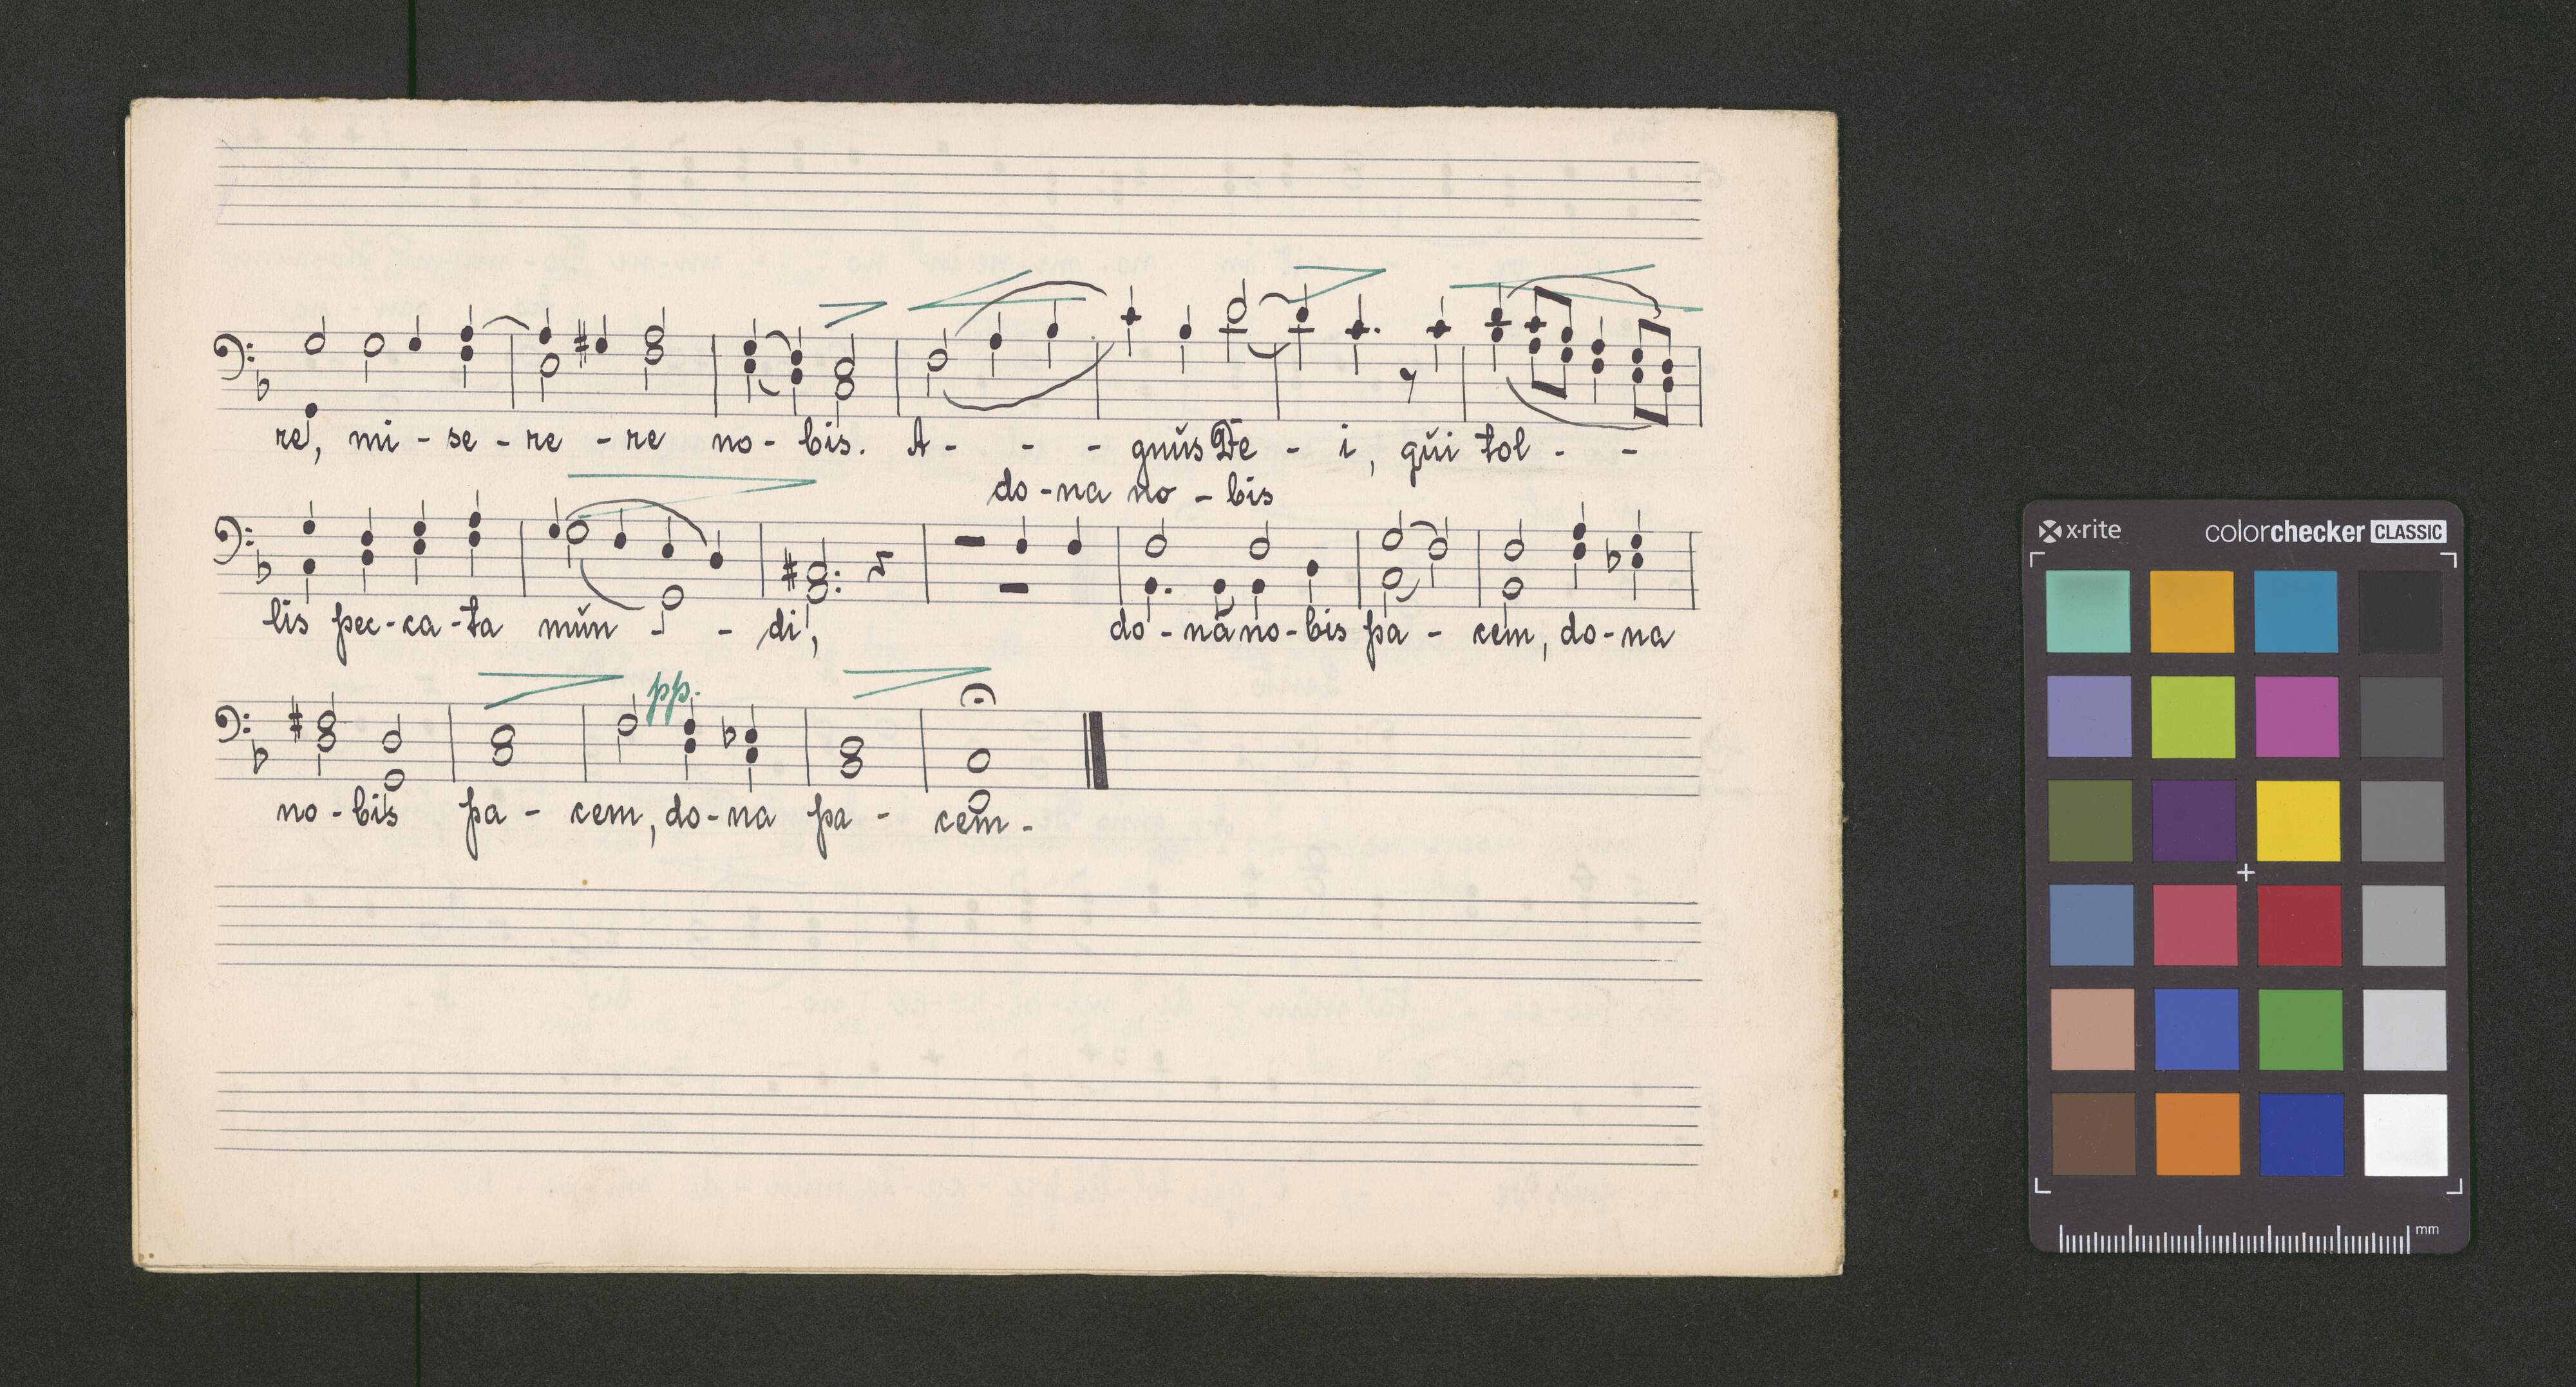 re, mi - se - re - re no - bis. A - - - gnus De - i, qui tol - -
do - na no - bis
lis pec - ca - ta mun - - di, do - na no - bis pa - cem, do - na
pp.
no - bis pa - cem, do - na pa - cem -
x-rite colorchecker CLASSIC
mm